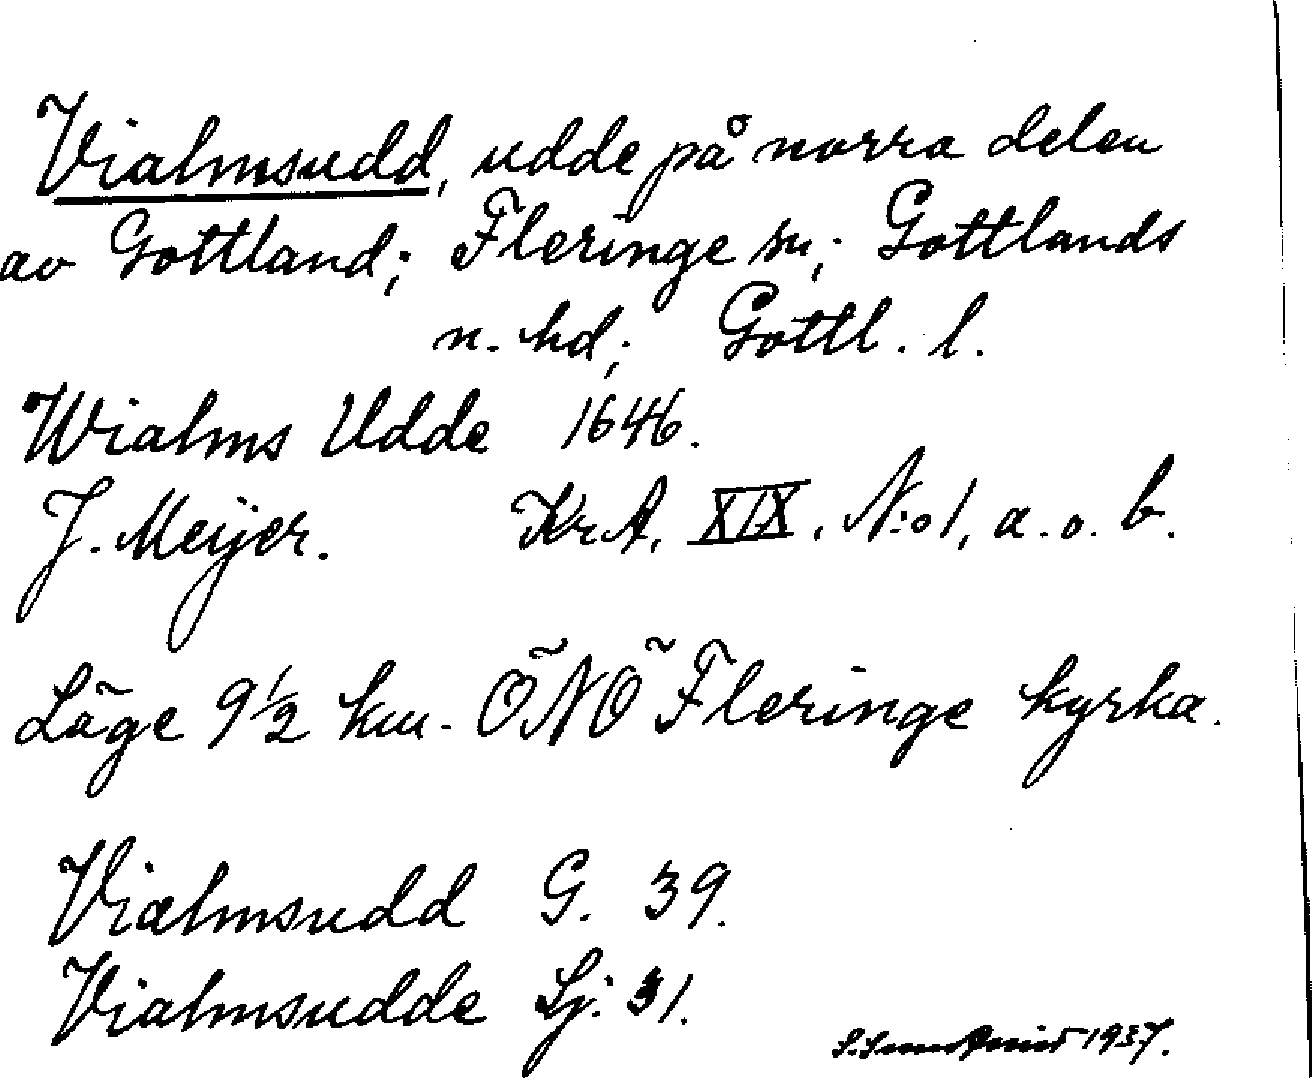 Vialmsudd, udde på norra delen
av Gottland; Fleringe sn; Gottlands
n. hd; Gottl. l.
Wialms Udde 1646.
J. Meijer. KrA. XIX. N:o 1, a. o. b.
Läge 9 1/2 km. ÖNÖ Fleringe kyrka.
Vialmsudd G. 39.
Vialmsudde Sj. 31.
1937.